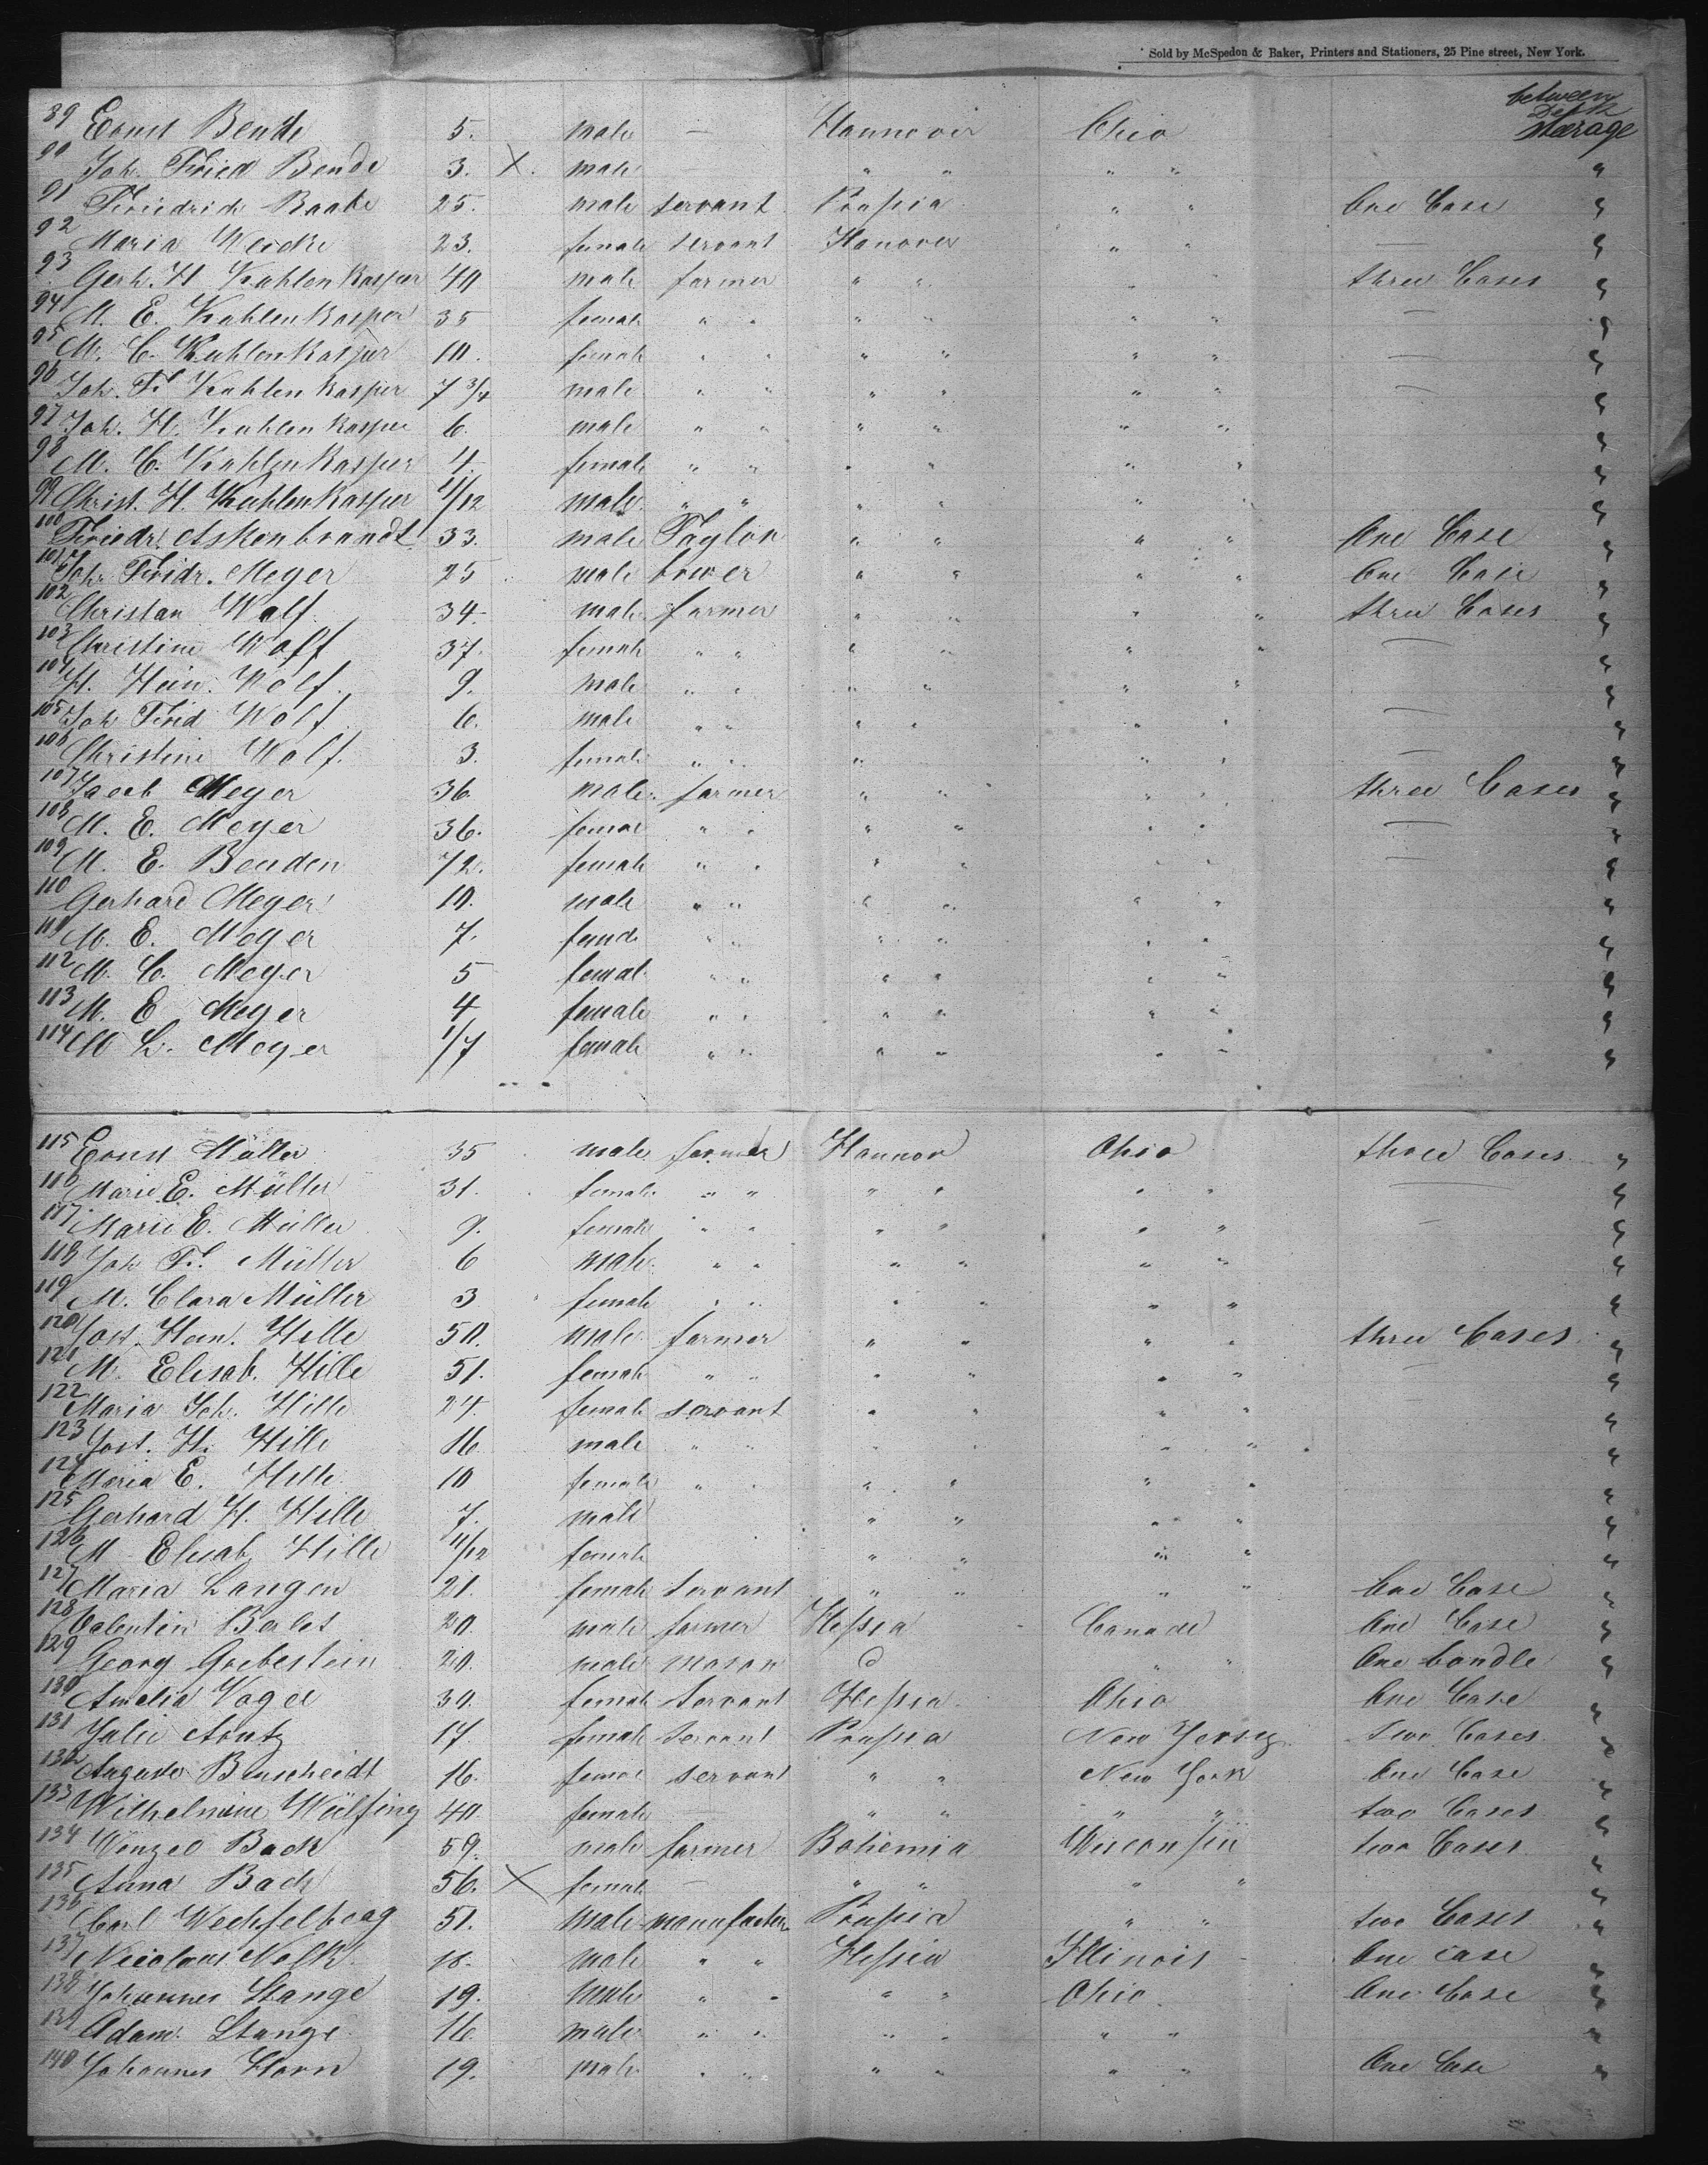 Sold by McSpedon & Baker, Printers and Stationers, 25 Pine street, New York.
between
Deck
sterage
89 Ernst Bende 5. male — Hannover Ohio
90 Joh. Fried Bende 3. X. male " " " " "
91 Friedrich Raabe 25. male servant Prussia " " One Case "
92 Maria 23. female servant Hanover " " — "
93 Gerh. H. Kahlenkasper 40 male farmer " " " three Cases "
94 M. E. Kahlenkasper 35 female " " " " " " — "
95 M. C. Kahlenkasper 10. female " " " " " " — "
96 Joh. Fr. Kahlenkasper 7 3/4 male " " " " " " — "
97 Joh. H. Kahlenkasper 6. male " " " " " " "
98 M. C. Kahlenkasper 4. female " " " " " " "
99 Christ. H. Kahlenkasper 11/12 male " " " " " " "
100 Friedr. Askenbrandt 33. male Taylor " " " " One Case "
101 Joh. Fridr. Meyer 25 male " " " " One Case "
102 Christian Wolf. 34. male farmer " " " " three Cases "
103 Christine Wolff 37. female " " " " " " — "
104 H. Hein. Wolf. 9. male " " " " " " "
105 Joh Frid Wolf 6. male " " " " " " — "
106 Christine Wolf. 3. female " " " " " — "
107 Jacob Meyer 36. male farmer " " " " three Cases "
108 M. E. Meyer 36. female " " " " " " — "
109 M. E. Benden 72. female " " " " " " — "
110 Gerhard Meyer 10. male " " " " " " "
111 M. E. Meyer 7. female " " " " " " "
112 M. C. Meyer 5 female " " " " " " "
113 M. E. Meyer 4 female " " " " " " "
114 M L. Meyer 1/7 female " " " " " " "
115 Ernst Müller 35 male farmer Hannov Ohio three Cases "
116 Marie E. Müller 31. female " " " " " " — "
117 Marie E. Müller 9. female " " " " " " — "
118 Joh Fr. Müller 6 male " " " " " " "
119 M. Clara Müller 3 female " " " " " " "
120 Jost. Hein. Hille 50. male farmer " " " " three Cases "
121 M. Elisab. Hille 51. female " " " " " " — "
122 Maria Joh. Hille 24. female servant " " " " "
123 Jost. H. Hille 16 male " " " " " " "
124 Maria E. Hille 10 female " " " " " " "
125 Gerhard H. Hille 7. male " " " " "
126 M Elisab. Hille 11/12 female " " " " "
127 Maria Langen 21. female servant " " " " One Case "
128 Valentin Berlet 20. male farmer Hessia Canada One Case "
129 Georg Grebestein 20. male mason d " " One bondle "
130 Amelia Vogel 30. female servant Hessia Ohio One Case "
131 Julie Arntz 17. female servant Prussia New Jersey two Cases "
132 Auguste Benscheidt 16. female servant " " New York One Case "
133 Wilhelmine Wülfing 40. female — " " " " two Cases "
134 Wenzel Back 59. male farmer Bohemia Wisconsin two Cases "
135 Anna Back 56. X female — " " " " "
136 Carl 51. male Prussia " " two Cases "
137 Nicolaus Nolk 18. male " " Hessia Illinois One case "
138 Johannes Stange 19. male " " " " Ohio One Case "
139 Adam Stange 16 male " " " " " " "
140 Johannes Horn 19. male " " " " " " One Case "